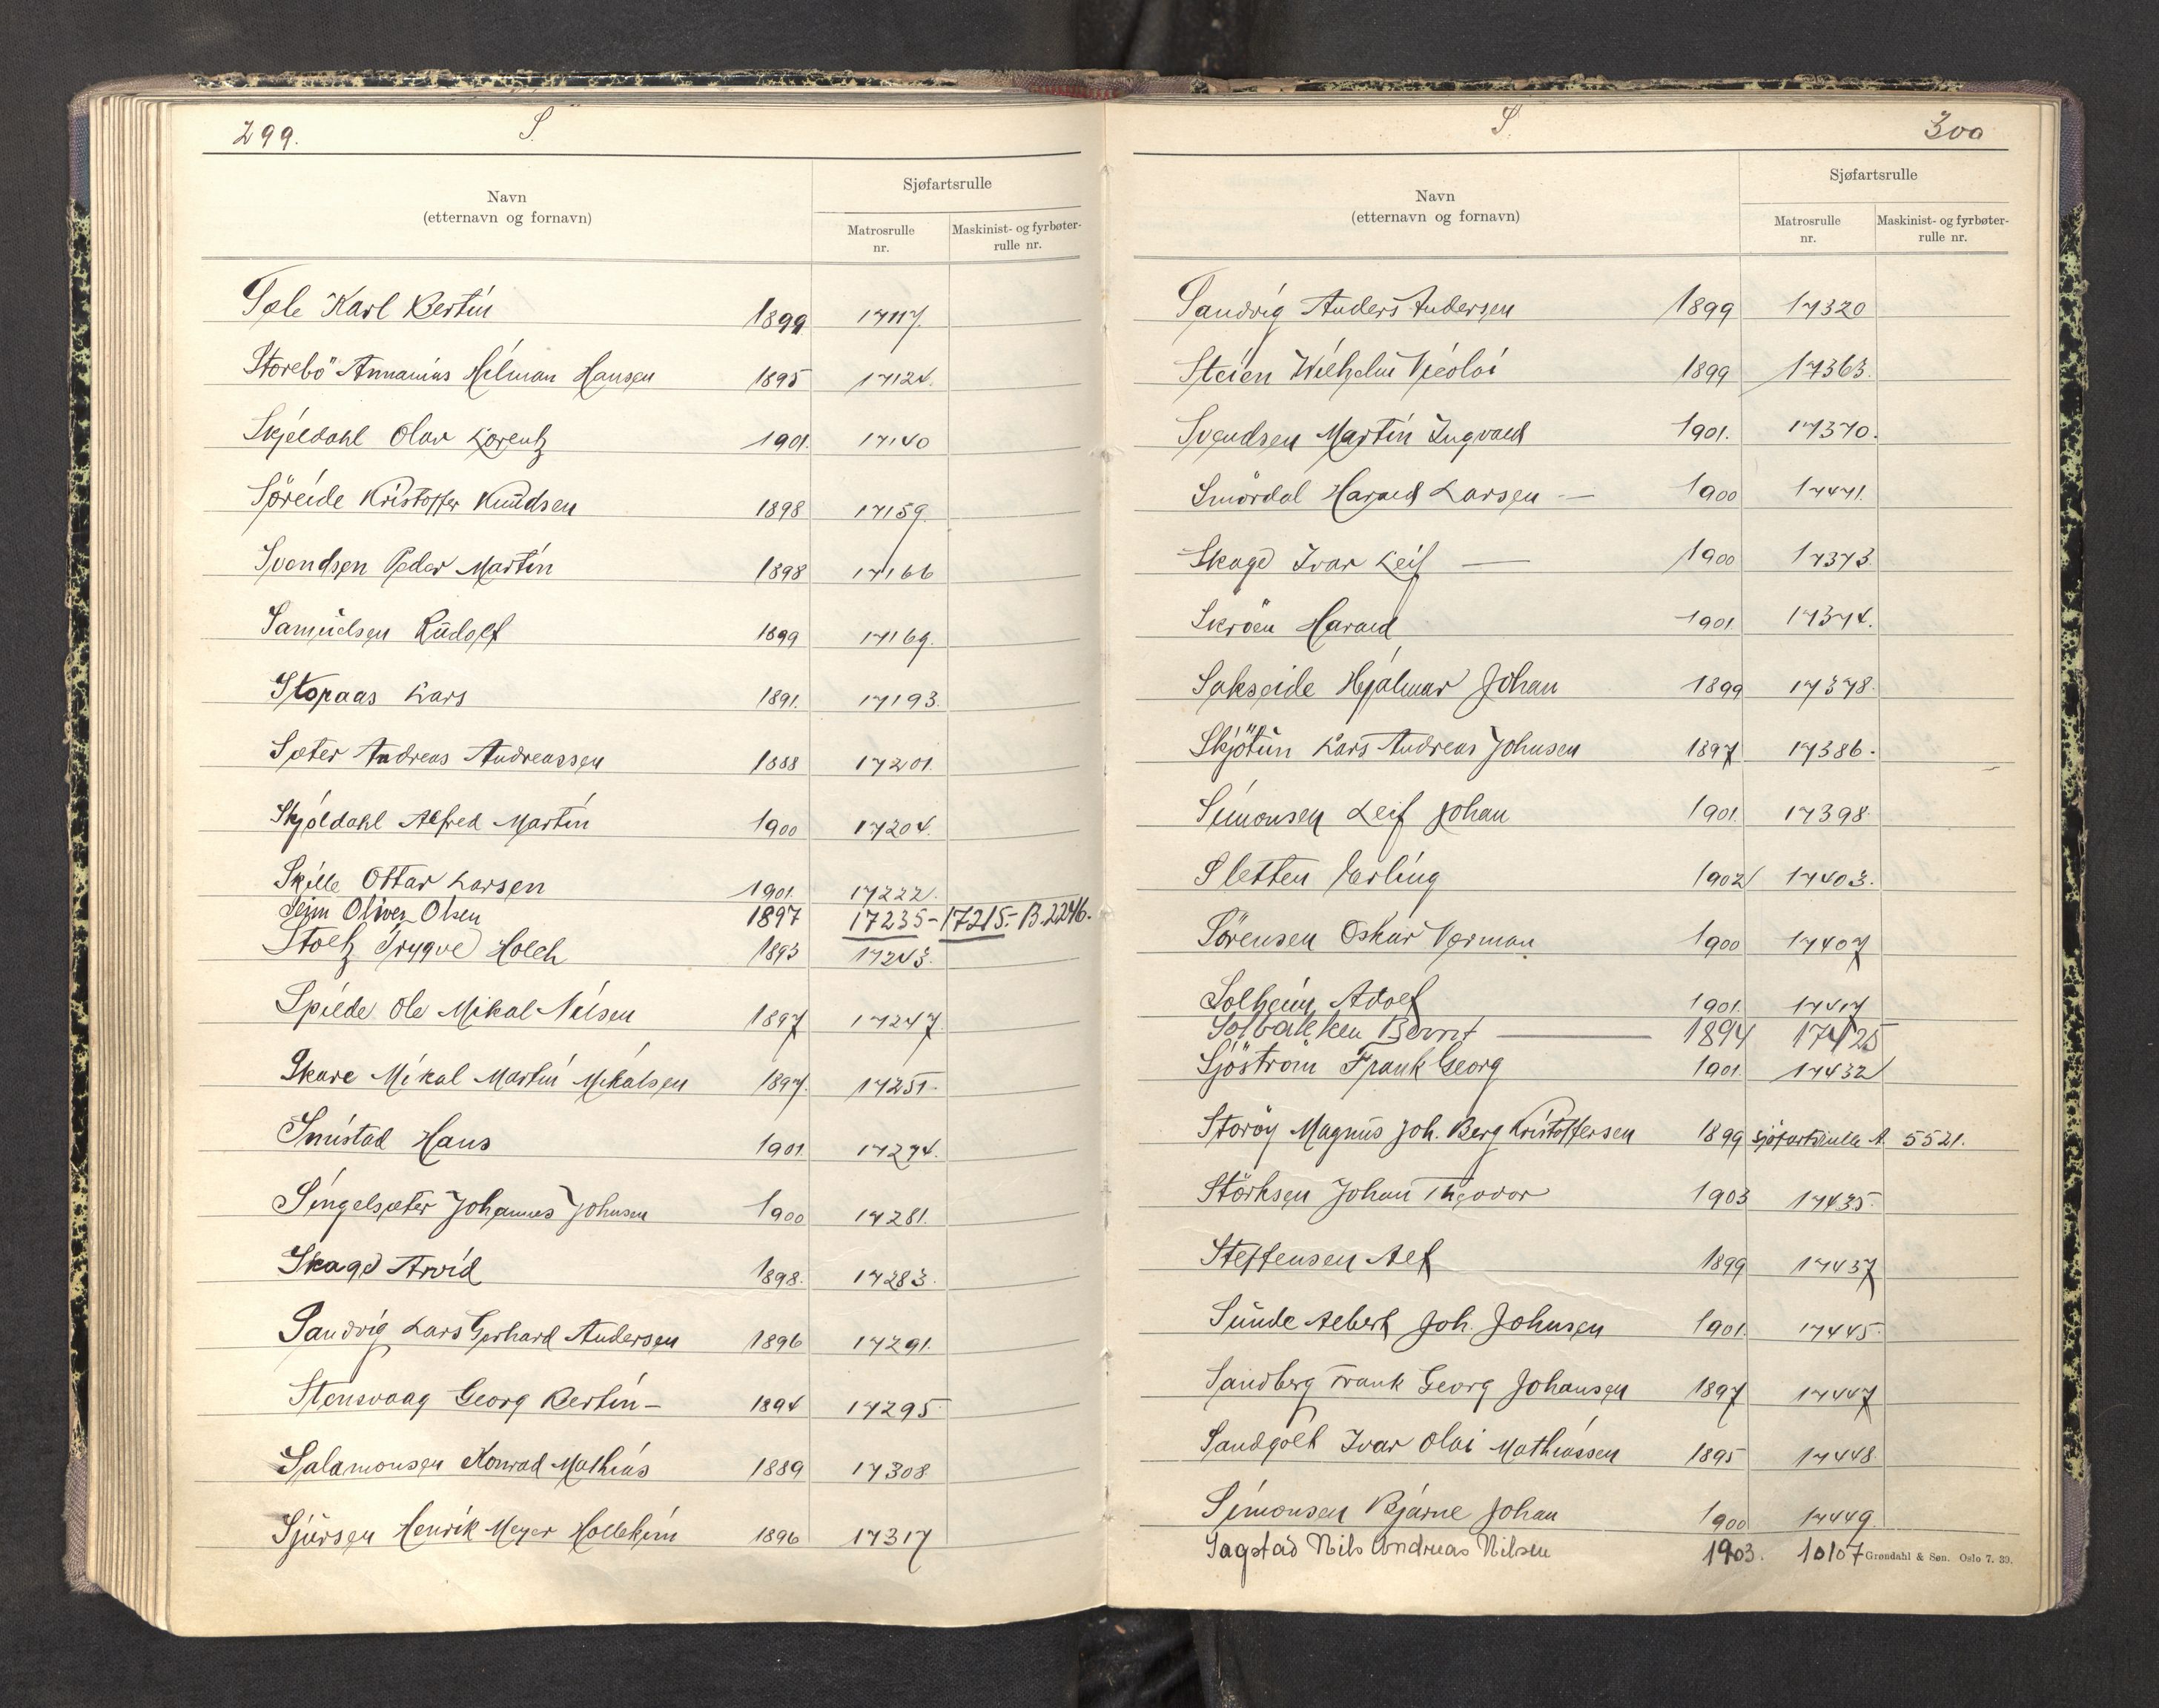 299. S.
Navn
(etternavn og fornavn)
Sjøfartsrulle
Matrosrulle
nr.
Maskinist- og fyrbøter-
rulle nr.
Sæle Karl Bertin 1899 17117.
Storebö Annanias Hilman Hansen 1895 17124.
Skjeldahl Olav Lorentz 1901. 17140
Söreide Kristoffer Knudsen 1898 17159.
Svendsen Peder Martin 1898 17166
Samuelsen Rudolf 1899 17169.
Storaas Lars 1891. 17193.
Sæter Andreas Andreassen 1888 17201.
Skjöldahl Alfred Martin 1900 17204.
Skille Ottar Larsen 1901. 17222.
Seim Oliver Olsen 1897 17235-17215.- B.2246.
Stoltz Trygve Holch 1893 17243.
Spilde Ole Mikal Nilsen 1897 17247.
Skare Mikal Martin Mikalsen 1897. 17251.
Smistad Hans 1901 17274.
Singelsæter Johannes Johnsen 1900 17281.
Skage Arvid 1898. 17283.
Sandvig Lars Gerhard Andersen 1896 17291.
Stensvaag Georg Bertin - 1894 17295
Salamonsen Konrad Mathias 1889 17308
Sjursen Henrik Meyer 1896 17317
S. 300
Navn
(etternavn og fornavn)
Sjøfartsrulle
Matrosrulle
nr.
Maskinist- og fyrbøter-
rulle nr.
Sandvig Anders Andersen 1899 17320
Steien Wilhelm Nicolai 1899 17363.
Svendsen Martin Ingvald 1901. 17370.
Smördal Harald Larsen — 1900 17471.
Skage Ivar Leif — 1900 17373.
Skröen Harald 1901 17374.
Sakseide Hjalmar Johan 1899 17378.
Skjötun Lars Andreas Johnsen 1897 17386.
Simonsen Leif Johan 1901. 17398.
Sletten Erling 1902 17403.
Sörensen Oskar Herman 1900 17407
Solheim Adolf 1901. 17417
Solbakken Bernt — 1894 17425
Sjöström Frank Georg 1901 17432
Storöy Magnus Joh. Berg Kristoffersen 1899 sjøfartsrulle A 5521.
Störksen Johan Theodor 1903 17435.
Steffensen Alf 1899 17437
Sunde Albert Joh. Johnsen 1901. 17445.
Sandberg Frank Georg Johansen 1897 17447
Sandgolt Ivar Olai Mathiassen 1895 17448.
Simonsen Bjarne Johan 1900 17449.
Sagstad Nils Andreas Nilsen 1903. 10107
Grøndahl & Søn. Oslo 7. 39.